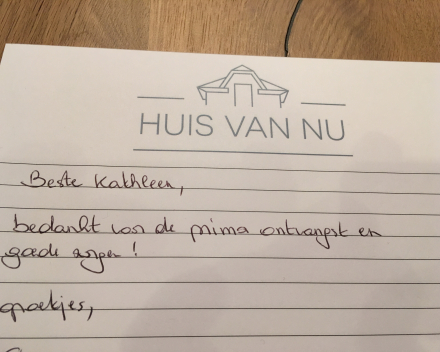 HUIS VAN NU
Beste Kathleen,
bedankt voor de prima ontvangst en
goede zorgen!
groetjes,